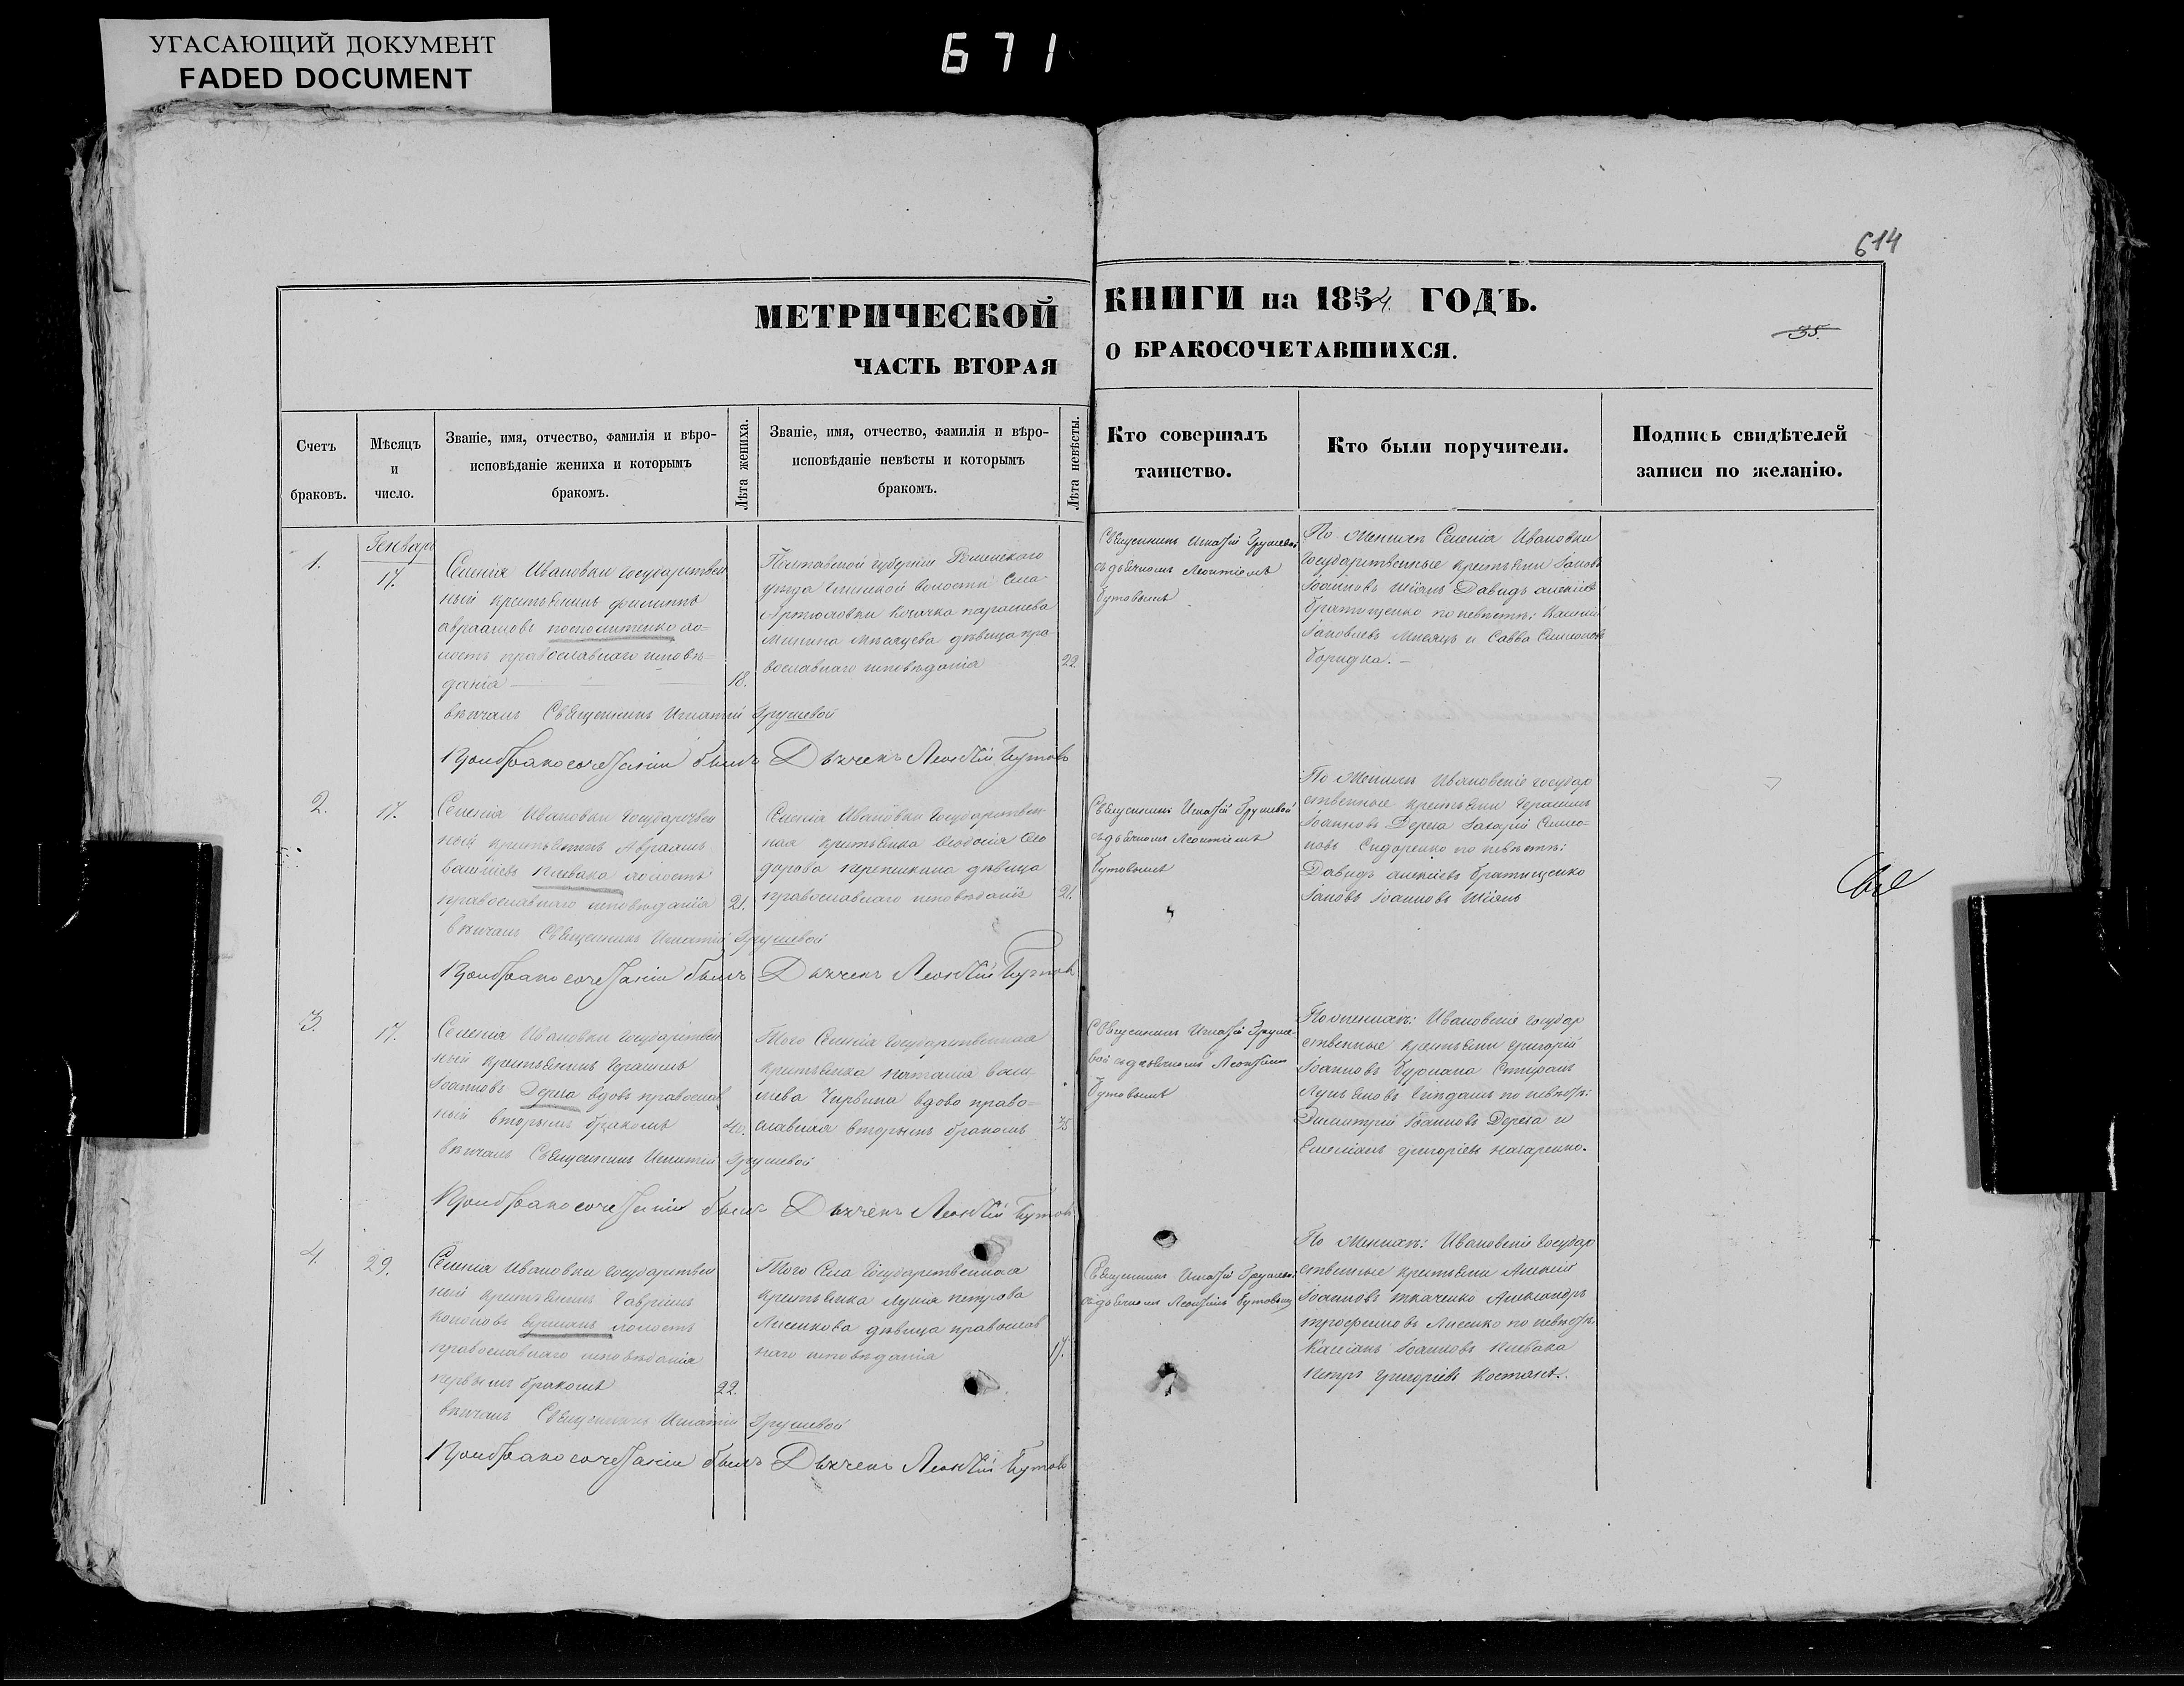 УГАСАЮЩИЙ ДОКУМЕНТ
FADED DOCUMENT
671
614
МЕТРИЧЕСКОЙ КНИГИ на 1854 ГОДЪ.
35.
ЧАСТЬ ВТОРАЯ О БРАКОСОЧЕТАВШИХСЯ.
Счетъ браковъ.
Мѣсяцъ и число.
Званіе, имя, отчество, фамилія и вѣро-
исповѣданіе жениха и которымъ
бракомъ.
Лѣта жениха.
Званіе, имя, отчество, фамилія и вѣро-
исповѣданіе невѣсты и которымъ
бракомъ.
Лѣта невѣсты.
Кто совершалъ
таинство.
Кто были поручители.
Подпись свидѣтелей
записи по желанію.
1.
Генварь
17.
Селенія Ивановки государствен
ный крестьянинъ Филиппъ
Авраамовъ
православнаго исповѣ-
данія
18.
Полтавской губерніи Роменскаго
уѣзда волости села
Артюховки козачка
Минина дѣвица пра
вославнаго исповѣданія
22.
Священникъ Игнатій Грушевой
съ дьячкомъ Леонтіемъ
Бутовымъ
По женихѣ Селенія Ивановки
государственные крестьяне Іаковъ
Іоанновъ Давидъ Алексіевъ
Братищенко по невѣстѣ:
Іаковлевъ и Савва Симеоновъ
вѣнчалъ Священникъ Игнатій Грушевой
При бракосочетаніи былъ Дьячекъ Леонтій Бутовъ
2.
17.
Селенія Ивановки государствен
ный крестьянинъ Авраамъ
Клевака холостъ
православнаго исповѣданія
21.
Селенія Ивановки государствен
ная крестьянка Ѳеодосія Ѳео
дорова дѣвица
православнаго исповѣданія
21.
Священникъ Игнатій Грушевой
съ дьячкомъ Леонтіемъ
Бутовымъ
По женихѣ Ивановскіе государ
ственные крестьяне Герасимъ
Іоанновъ Дерега Захарій Симео-
новъ Сидоренко по невѣстѣ:
Давидъ Алексіевъ Братищенко
Іаковъ Іоанновъ
вѣнчалъ Священникъ Игнатій Грушевой
При бракосочетаніи былъ Дьячекъ Леонтій Бутовъ
3.
17.
Селенія Ивановки государствен
ный крестьянинъ Герасимъ
Іоанновъ Дерега вдовъ православ
ный вторымъ бракомъ
40.
Того Селенія государственная
крестьянка Наталія Васи
лева Чирвина вдова право-
славная вторымъ бракомъ
35
Священникъ Игнатій Груше-
вой съ дьячкомъ Леонтіемъ
Бутовымъ
По женихѣ: Ивановскіе государ
ственные крестьяне Григорій
Іоанновъ
по невѣстѣ:
Димитрій Іоанновъ Дерега и
Емеліанъ Григоріевъ Назаренко.
вѣнчалъ Священникъ Игнатій Грушевой
При бракосочетаніи былъ Дьячекъ Леонтій Бутовъ
4.
29.
Селенія Ивановки государствен
ный крестьянинъ Гавріилъ
Кононовъ холостъ
православнаго исповѣданія
первымъ бракомъ
22.
Того Села государственная
крестьянка Лукія Петрова
Лисенкова дѣвица православ
наго исповѣданія
17.
Священникъ Игнатій Грушевой
съ дьячкомъ Леонтіемъ Бутовымъ
По женихѣ: Ивановскіе государ
ственные крестьяне Алексій
Іоанновъ Ткаченко Александръ
Трофимовъ Лисенко по невѣстѣ:
Касіанъ Іоанновъ Клевака
Петръ Григоріевъ
вѣнчалъ Священникъ Игнатій Грушевой
При бракосочетаніи былъ Дьячекъ Леонтій Бутовъ